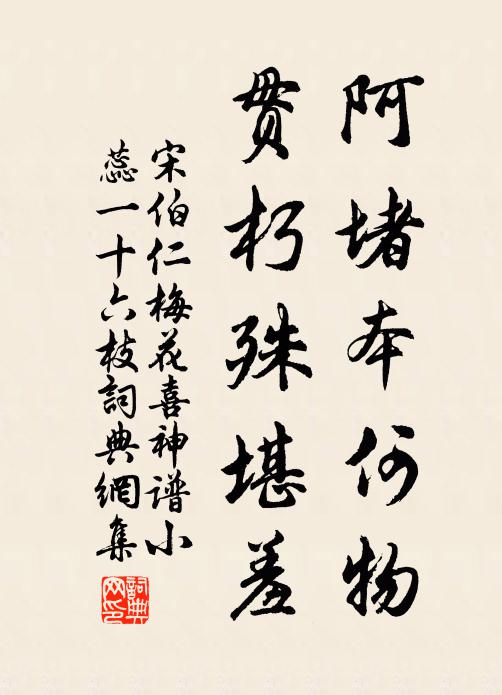 阿堵本何物
贯朽殊堪羞
宋伯仁梅花喜神谱小
蕊一十六枝词典網集